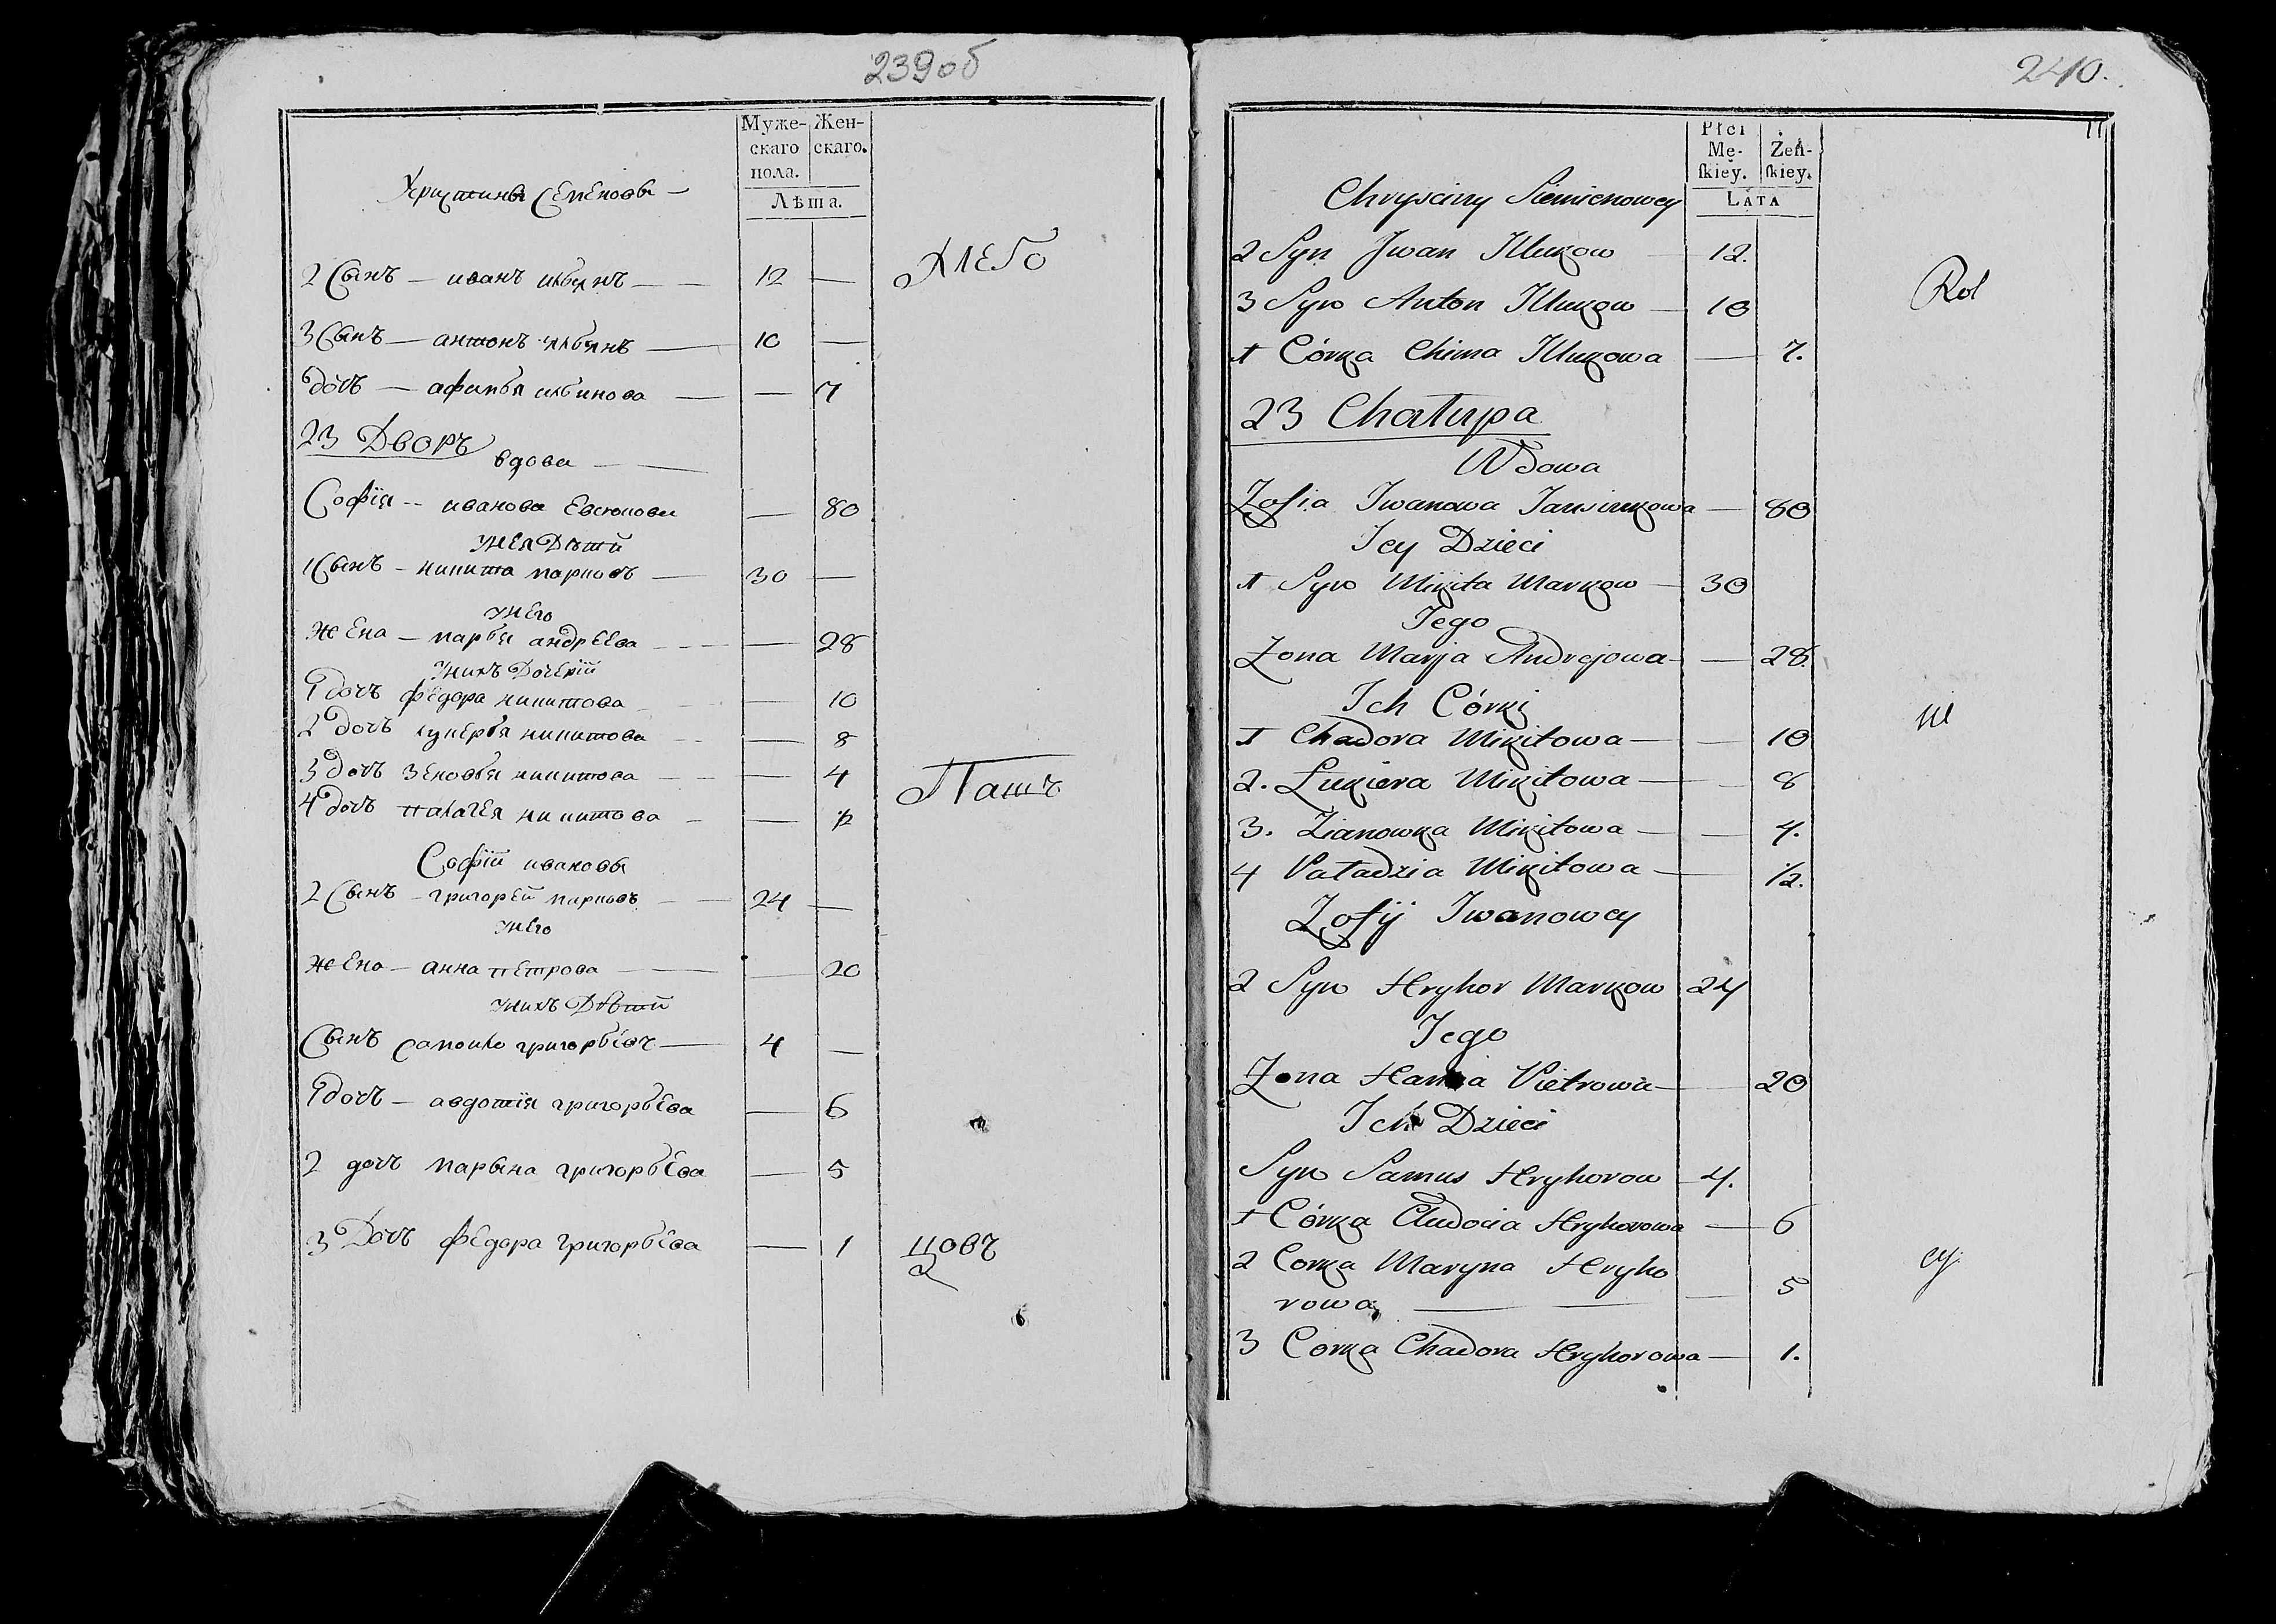 239об
Муже-
скаго
пола.
Жен-
скаго.
Лѣта.
Христины Семеновы —
2 Сынъ — иванъ ильинъ — — 12 —
3 Сынъ — антонъ ильинъ — 10 —
дочь — афимья ильинова — — 7
23 Дворъ
вдова —
Софїя — иванова — 80
унея Дѣтй
1 Сынъ — никита марковъ — 30 —
унего
жена — марья андрѣева — — 28
унихъ Дочерїй
1 дочь федора никитова — 10
2 дочь лукерья никитова — 8
3 дочь зеновья никитова — 4
4 дочь палагея никитова — ½
Софїй ивановы
2 Сынъ — григорей марковъ — 24 —
унего
жена — анна петрова — — 20
унихъ Дѣтй
Сынъ самойло григорьевъ — 4 —
1 дочь — авдотїя григорьева — 6
2 дочь марына григорьева — 5
3 Дочь федора григорьева — 1
Хлебо
Пашъ
цовъ
240.
11
Płci
Mę-
ſkiey.
Żeń-
ſkiey.
LATA
Chrysciny Siemienowey
2 Syn Jwan Illukow — 12.
3 Syn Anton Illukow — 10
1 Córka Chima Illukowa — 7.
23 Chałupa
Wdowa
Zofia Jwanowa — 80
Jey Dzieci
1 Syn Mikita Markow — 30
Jego
Zona Marja Andrejowa — — 28.
Jch Córki
1 Chadora Mikitowa — — 10
2. Lukiera Mikitowa — — 8
3. Zianowka Mikitowa — — 4.
4 Paładzia Mikitowa — — ½.
Zofij Jwanowey
2 Syn Hryhor Markow 24
Jego
Zona Hanna Pietrowa — 20
Jch Dzieci
Syn Samus Hryhorow 4.
1 Córka Audocia Hryhorowa — 6
2 Corka Maryna Hryho
rowa, — — 5
3 Corka Chadora Hryhorowa — 1.
Rol
ni
cy.